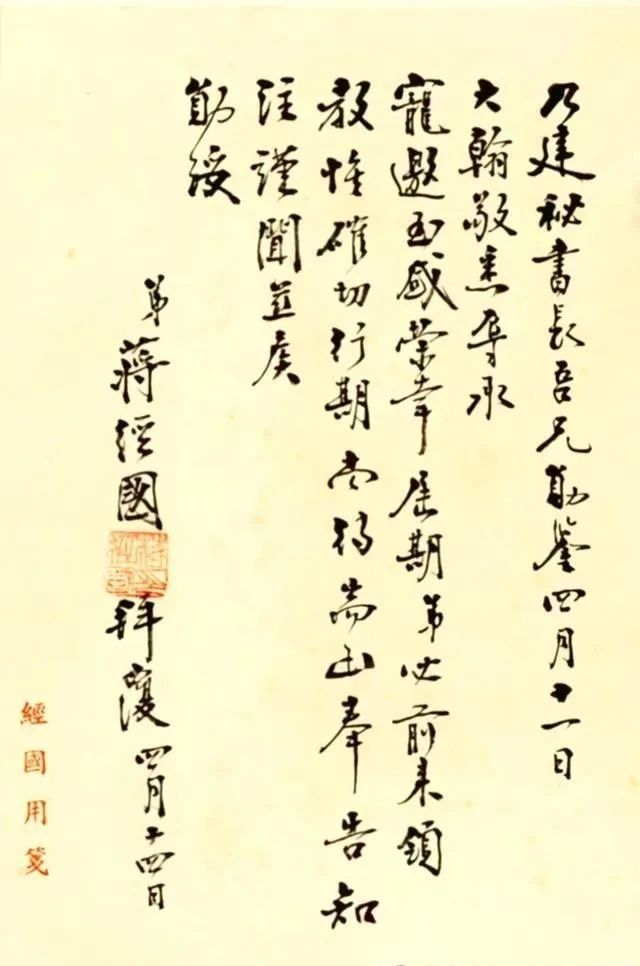 乃建秘書長吾兄勛鑒四月十一日
大翰敬悉辱承
寵邀至感榮幸屆期弟必前來領
教惟確切行期尚待耑函奉告知
注謹聞並候
勛綏
弟蔣經國拜覆四月十四日
經國用箋